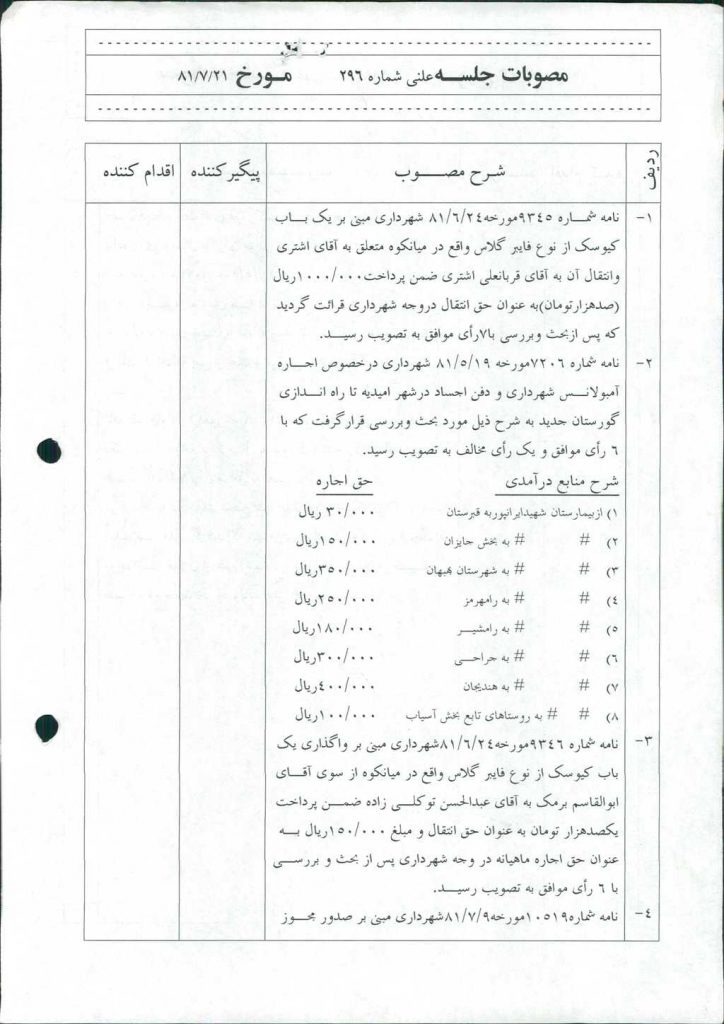 مصوبات جلسه علنی شماره ۲۹۶ مورخ ۸۱/۷/۲۱
ردیف شرح مصوب پیگیرکننده اقدام کننده
۱- نامه شماره ۹۳۴۵مورخه ۸۱/۶/۲۴ شهرداری مبنی بر یک باب
کیوسک از نوع فایبر گلاس واقع در میانکوه متعلق به آقای اشتری
وانتقال آن به آقای قربانعلی اشتری ضمن پرداخت۱۰۰۰/۰۰۰ریال
(صدهزارتومان)به عنوان حق انتقال دروجه شهرداری قرائت گردید
که پس ازبحث وبررسی با۷رأی موافق به تصویب رسید.
۲- نامه شماره ۷۲۰۶مورخه ۸۱/۵/۱۹ شهرداری درخصوص اجاره
آمبولانس شهرداری و دفن اجساد درشهر امیدیه تا راه اندازی
گورستان جدید به شرح ذیل مورد بحث وبررسی قرارگرفت که با
۶ رأی موافق و یک رأی مخالف به تصویب رسید.
شرح منابع درآمدی حق اجاره
۱) ازبیمارستان شهیدایرانپوربه قبرستان ۳۰/۰۰۰ ریال
۲) # # به بخش جایزان ۱۵۰/۰۰۰ریال
۳) # # به شهرستان بهبهان ۳۵۰/۰۰۰ریال
۴) # # به رامهرمز ۲۵۰/۰۰۰ریال
۵) # # به رامشیر ۱۸۰/۰۰۰ریال
۶) # # به جراحی ۳۰۰/۰۰۰ریال
۷) # # به هندیجان ۴۰۰/۰۰۰ریال
۸) # # به روستاهای تابع بخش آسیاب ۱۰۰/۰۰۰ریال
۳- نامه شماره ۹۳۴۶مورخه۸۱/۶/۲۴شهرداری مبنی بر واگذاری یک
باب کیوسک از نوع فایبر گلاس واقع در میانکوه از سوی آقای
ابوالقاسم برمک به آقای عبدالحسن توکلی زاده ضمن پرداخت
یکصدهزار تومان به عنوان حق انتقال و مبلغ ۱۵۰/۰۰۰ریال به
عنوان حق اجاره ماهیانه در وجه شهرداری پس از بحث و بررسی
با ۶ رأی موافق به تصویب رسید.
۴- نامه شماره۱۰۵۱۹مورخه۸۱/۷/۹شهرداری مبنی بر صدور مجوز